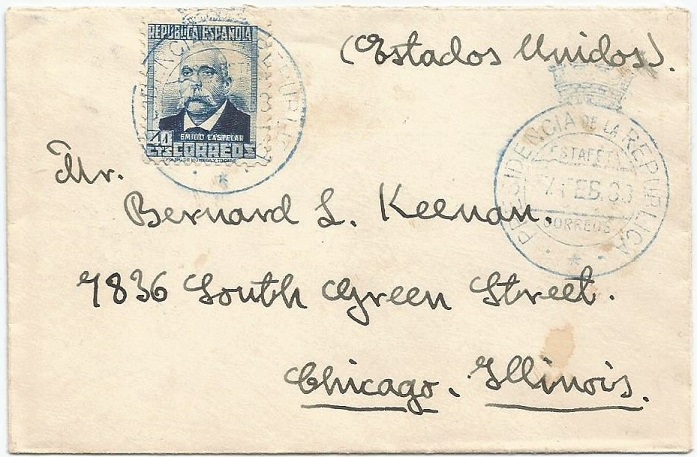 REPUBLICA ESPAÑOLA
EMILIO CASTELAR
40 CTS CORREOS
(Estados Unidos).
PRESIDENCIA DE LA REPUBLICA
ESTAFETA
FEB.
CORREOS
Mr.
Bernard L. Keenan.
7836 South Green Street.
Chicago. Illinois.